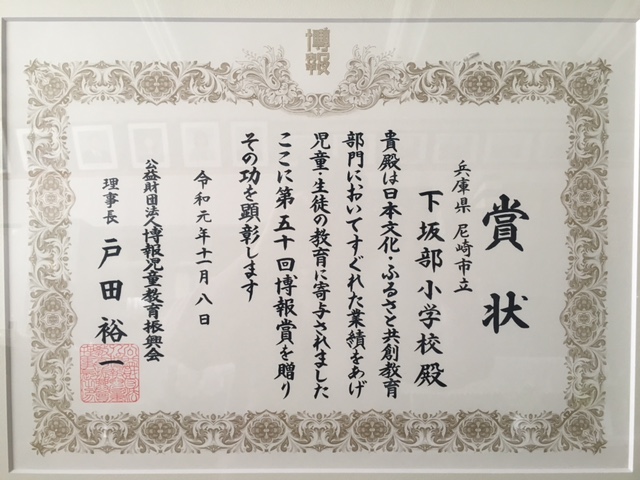 博報
賞状
兵庫県 尼崎市立
下坂部小学校殿
貴殿は日本文化・ふるさと共創教育
部門においてすぐれた業績をあげ
児童・生徒の教育に寄与されました
ここに第五十回博報賞を贈り
その功を顕彰します
令和元年十一月八日
公益財団法人博報児童教育振興会
理事長 戸田裕一